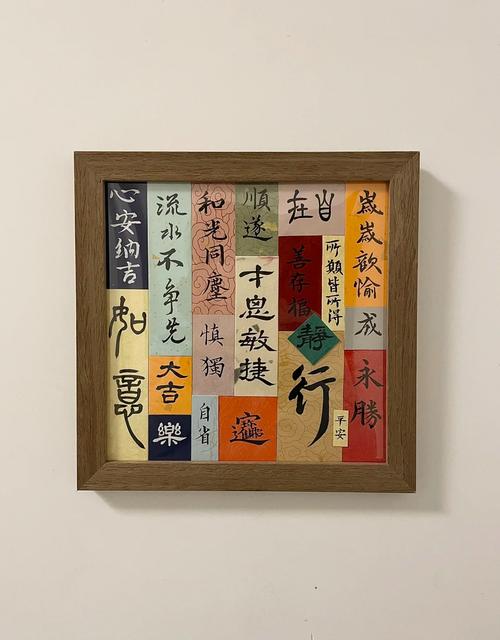 歲歲歡愉
成
永勝
自在
所願皆所得
善存福
靜
行
平安
順遂
才思敏捷
和光同塵
慎獨
自省
流水不争先
大吉
樂
心安納吉
如意